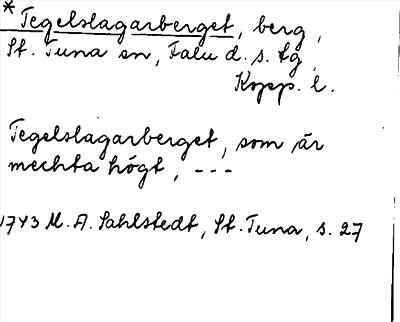 * Tegelslagarberget, berg,
St. Tuna sn, Falu d. s. tg
Kopp. l.
Tegelslagarberget, som är
mechta högt, ---
1743 M. A. Sahlstedt, St. Tuna, s. 27